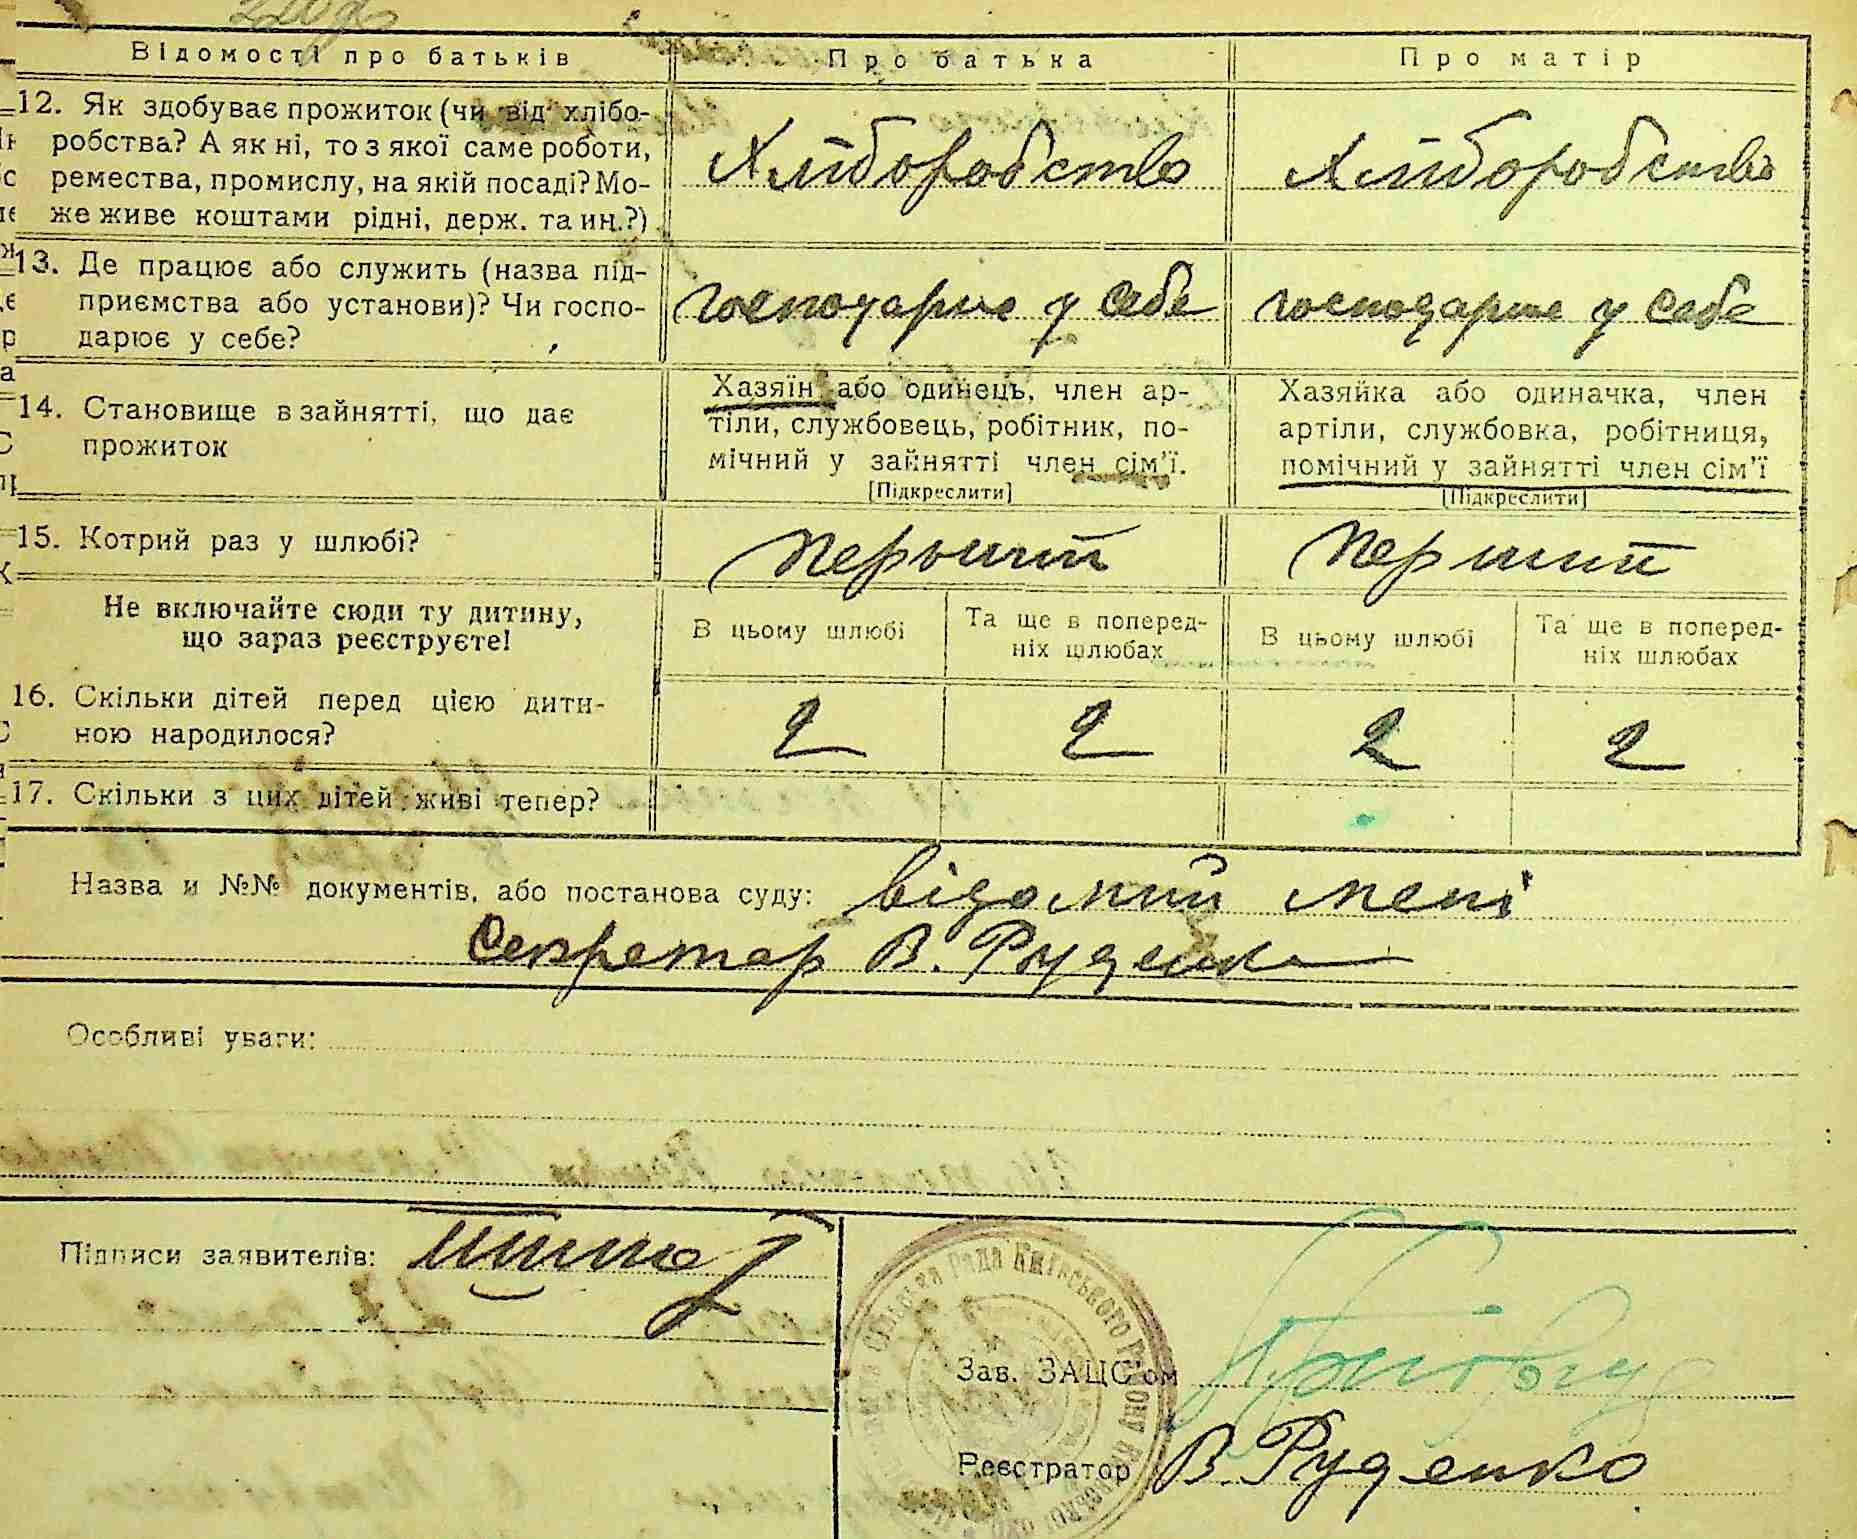 Відомості про батьків Про батька Про матір
12. Як здобуває прожиток (чи від хлібо-
робства? А як ні, то з якої саме роботи,
ремества, промислу, на якій посаді? Мо-
же живе коштами рідні, держ. та ин.?)
Хліборобство Хліборобство
13. Де працює або служить (назва під-
приємства або установи)? Чи госпо-
дарює у себе?
господарює у себе господарює у себе
14. Становище в зайнятті, що дає
прожиток
Хазяїн або одинець, член ар-
тіли, службовець, робітник, по-
мічний у зайнятті член сім'ї.
[Підкреслити]
Хазяйка або одиначка, член
артіли, службовка, робітниця,
помічний у зайнятті член сім'ї
[Підкреслити]
15. Котрий раз у шлюбі? Перший Перший
Не включайте сюди ту дитину,
що зараз реєструєте!
В цьому шлюбі
Та ще в поперед-
ніх шлюбах
В цьому шлюбі
Та ще в поперед-
ніх шлюбах
16. Скільки дітей перед цією дити-
ною народилося?
2 2 2 2
17. Скільки з цих дітей живі тепер?
Назва и №№ документів, або постанова суду: відомий мені
Секретар В. Руденко
Особливі уваги:
Підписи заявителів:
Сільська Рада Київського Району
Зав. ЗАЦС'ом
Реєстратор В Руденко